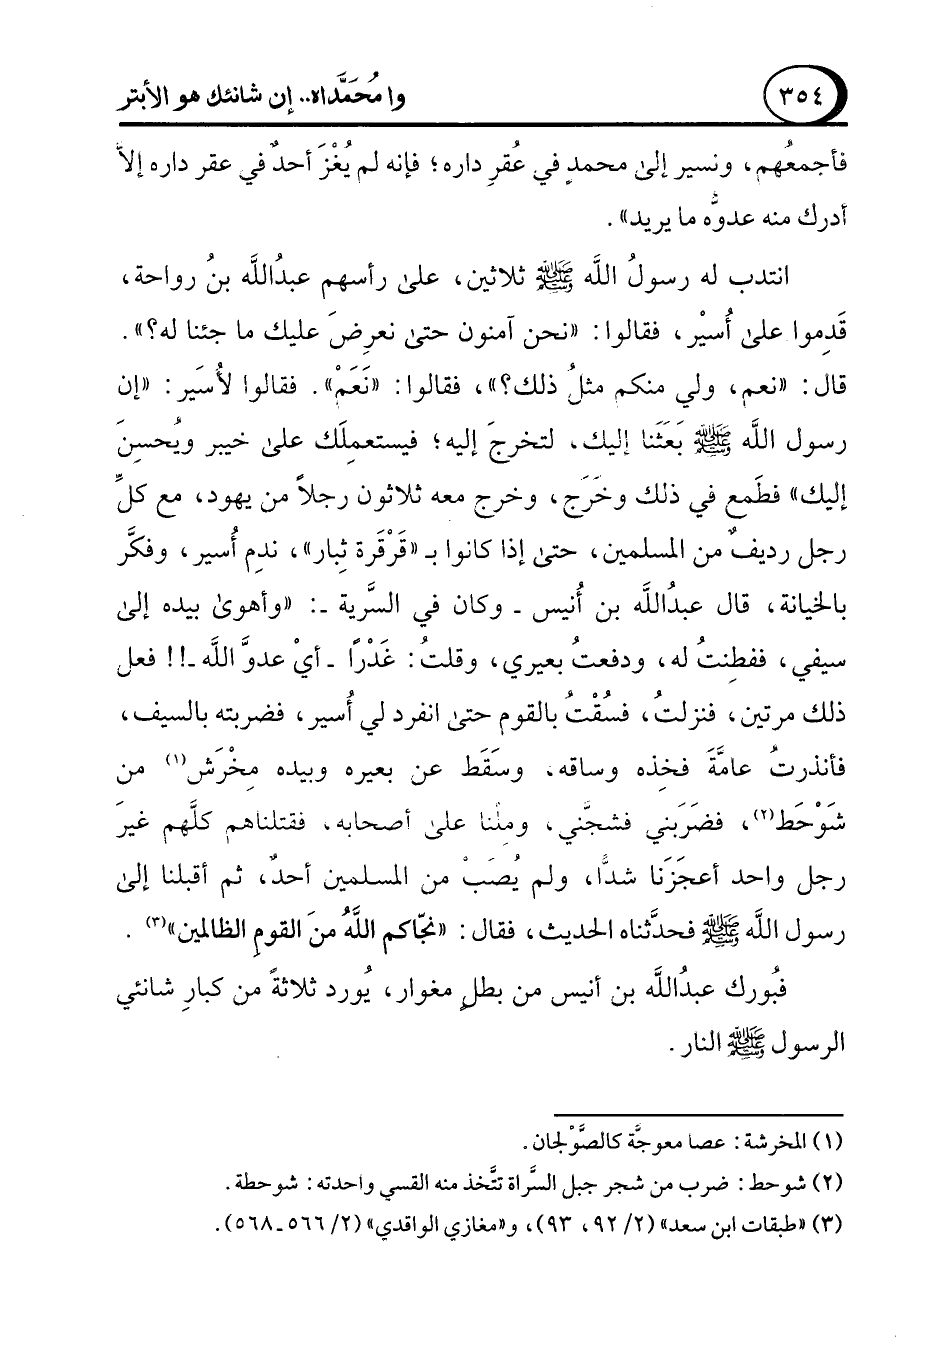 ٣٥٤
وا مُحَمَّداه.. إن شانئك هو الأبتر
فأجمعُهم، ونسير إلىٰ محمدٍ في عُقرِ داره؛ فإنه لم يُغْزَ أحدٌ في عقر داره إلاَّ
أدرك منه عدوُّه ما يريد».
انتدب له رسولُ اللَّه ﷺ ثلاثين، علىٰ رأسهم عبدُاللَّه بنُ رواحة،
قَدِموا علىٰ أُسيْر، فقالوا: «نحن آمنون حتىٰ نعرِضَ عليك ما جئنا له؟».
قال: «نعم، ولي منكم مثلُ ذلك؟»، فقالوا: «نَعَمْ». فقالوا لأُسَير: «إن
رسول اللَّه ﷺ بَعَثَنا إليك، لتخرجَ إليه؛ فيستعملَك علىٰ خيبر ويُحسِنَ
إليك» فطَمع في ذلك وخَرَج، وخرج معه ثلاثون رجلاً من يهود، مع كلِّ
رجل رديفٌ من المسلمين، حتىٰ إذا كانوا بـ «قَرْقَرة ثِبار»، ندم أُسير، وفكَّر
بالخيانة، قال عبدُاللَّه بن أُنيس ـ وكان في السَّرية ـ: «وأهوىٰ بيده إلىٰ
سيفي، ففطِنتُ له، ودفعتُ بعيري، وقلتُ: غَدْرًا ـ أيْ عدوَّ اللَّه ـ!! فعل
ذلك مرتين، فنزلتُ، فسُقْتُ بالقوم حتىٰ انفرد لي أُسير، فضربته بالسيف،
فأنذرتُ عامَّةَ فخذِه وساقه، وسَقَط عن بعيره وبيده مِخْرَش(١) من
شَوْحَط(٢)، فضرَبَني فشجَّني، ومِلْنا علىٰ أصحابه، فقتلناهم كلَّهم غيرَ
رجل واحد أعجَزَنا شدًّا، ولم يُصَبْ من المسلمين أحدٌ، ثم أقبلنا إلىٰ
رسول اللَّه ﷺ فحدَّثناه الحديث، فقال: «نجّاكم اللَّهُ منَ القومِ الظالمين»(٣).
فبُورك عبدُاللَّه بن أنيس من بطلٍ مغوار، يُورد ثلاثةً من كبارِ شانئي
الرسول ﷺ النار.
(١) المخرشة: عصا معوجَّة كالصَّوْلجان.
(٢) شوحط: ضرب من شجر جبل السَّراة تتَّخذ منه القسي واحدته: شوحطة.
(٣) «طبقات ابن سعد» (٢/ ٩٢، ٩٣)، و«مغازي الواقدي» (٢/ ٥٦٦ـ٥٦٨).